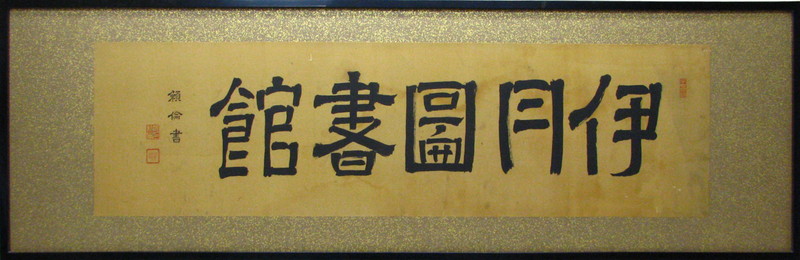 伊丹圖書館
頼倫書